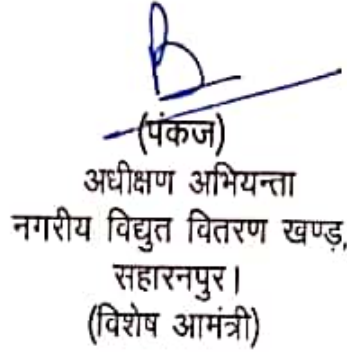 (पंकज)
अधीक्षण अभियन्ता
नगरीय विद्युत वितरण खण्ड,
सहारनपुर।
(विशेष आमंत्री)